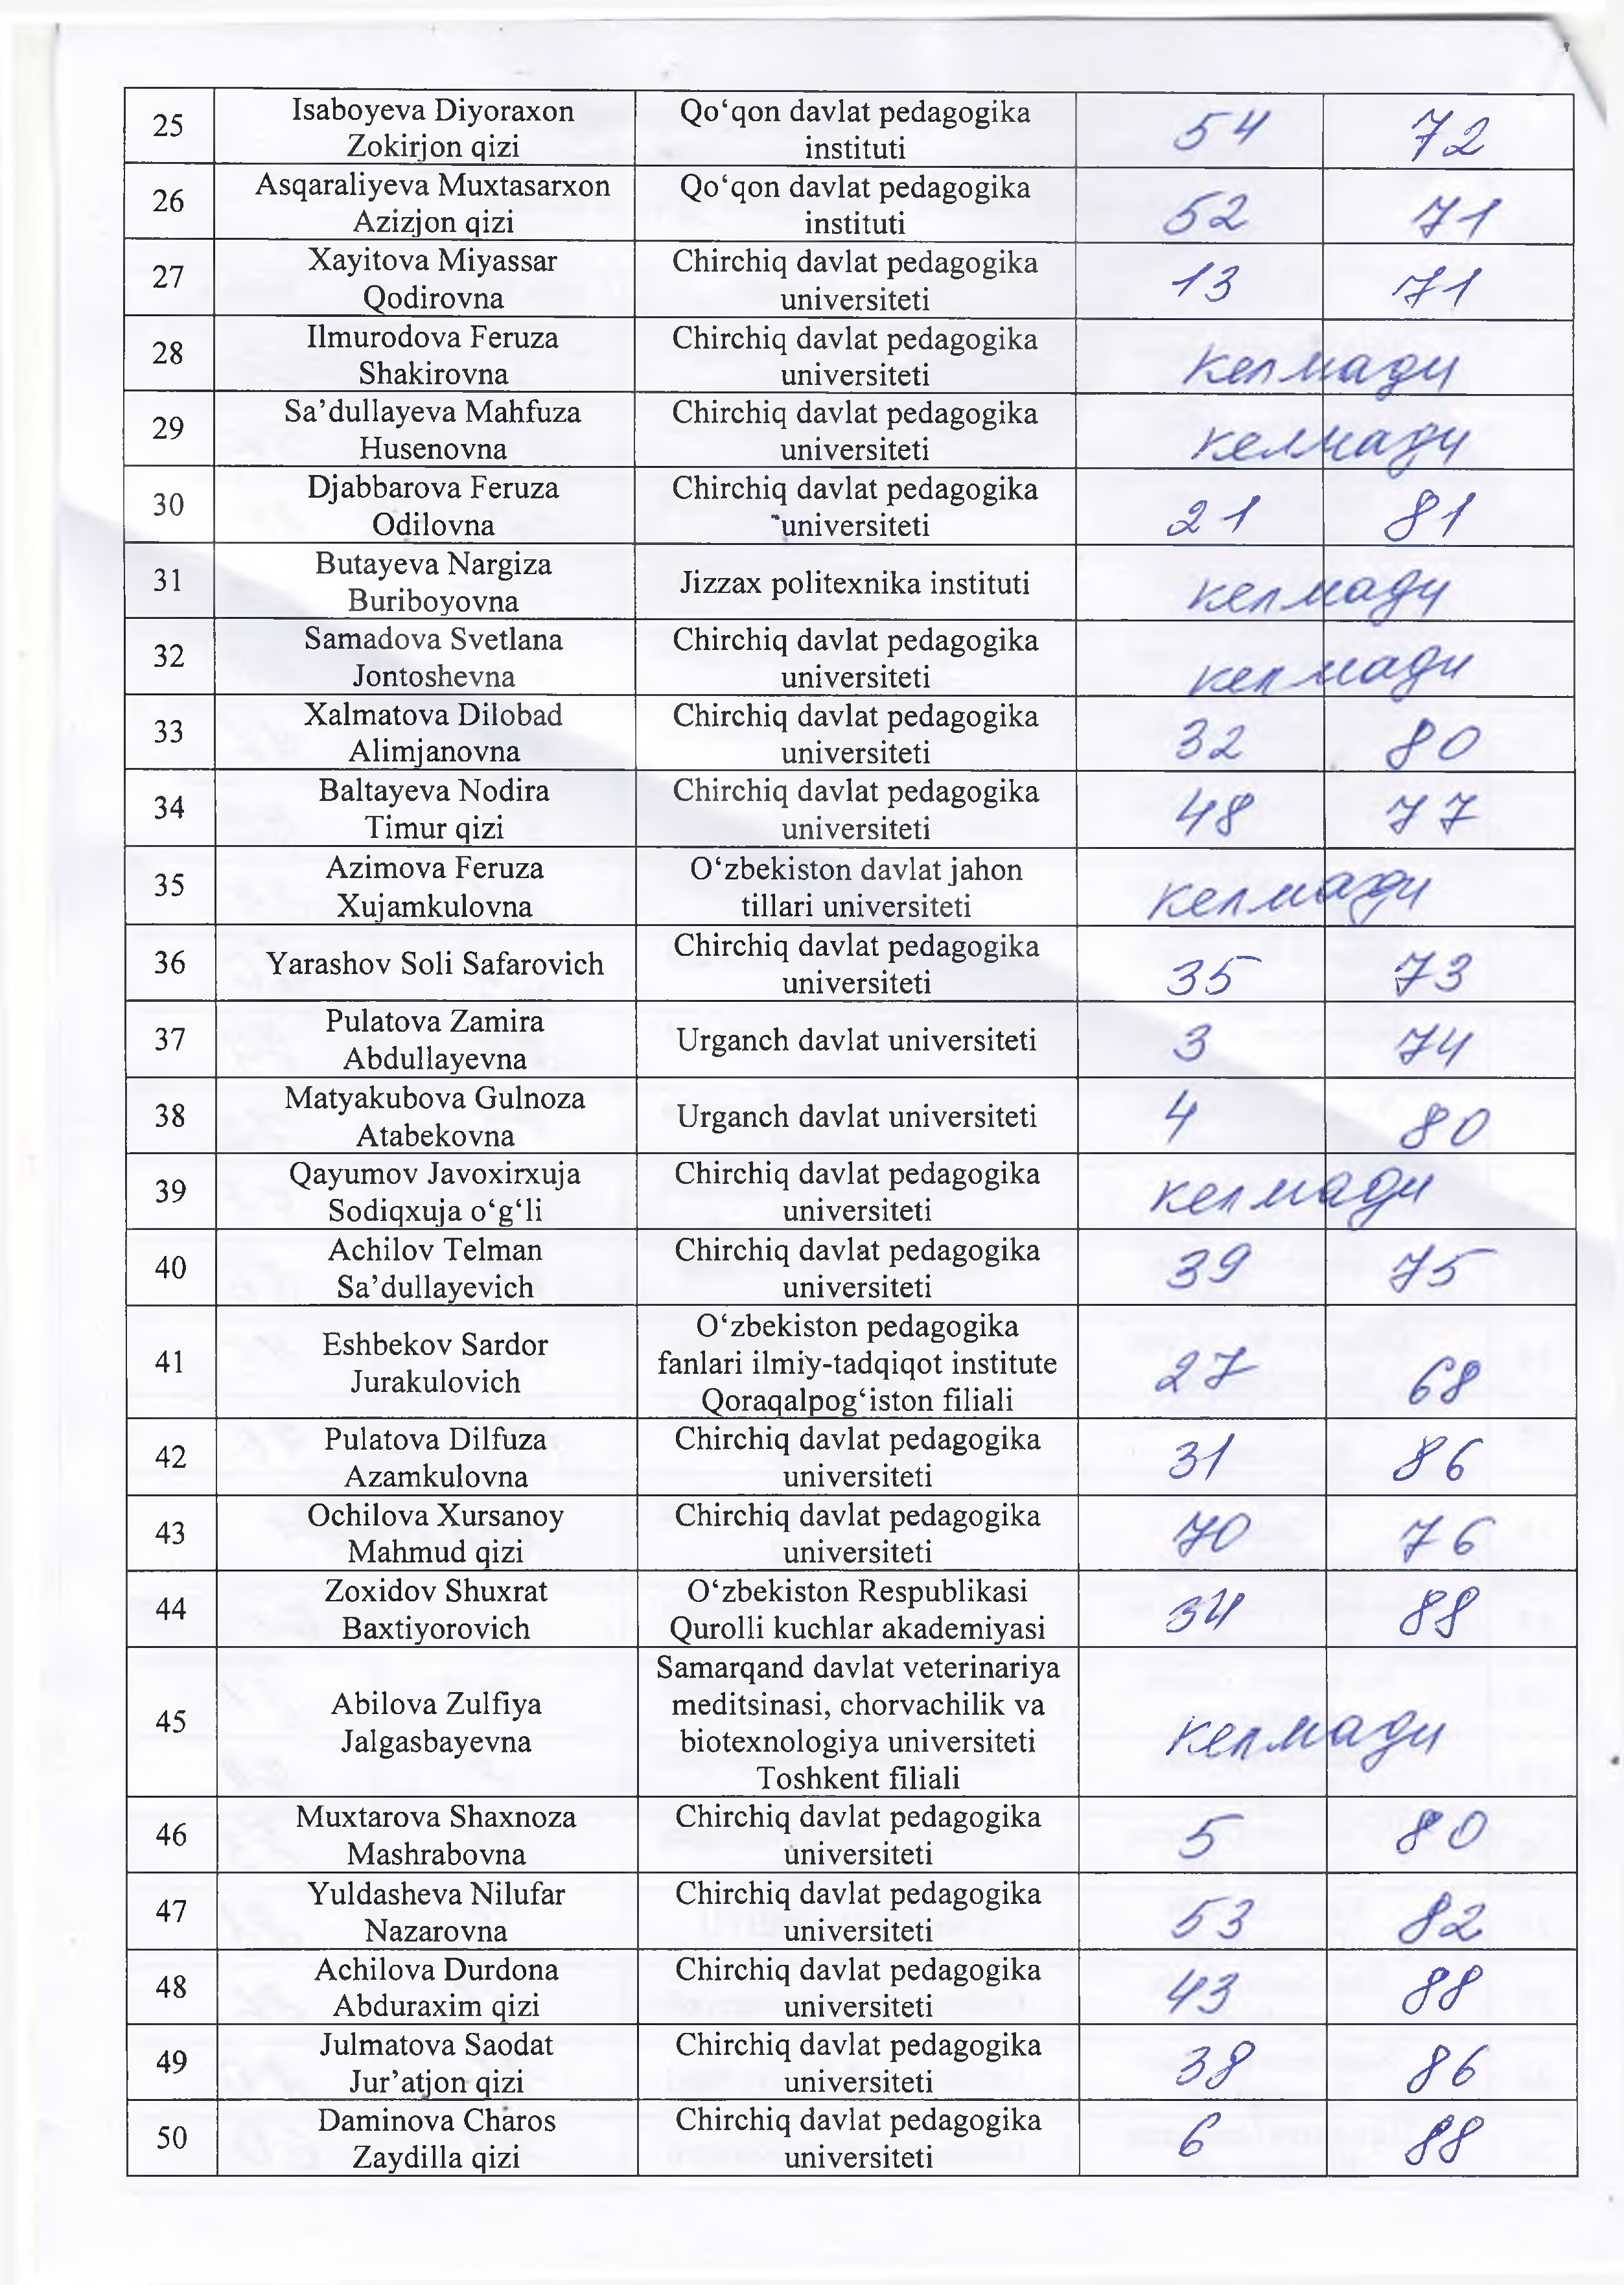 25 Isaboyeva Diyoraxon Qo‘qon davlat pedagogika 54 72
Zokirjon qizi instituti
26 Asqaraliyeva Muxtasarxon Qo‘qon davlat pedagogika 52 71
Azizjon qizi instituti
27 Xayitova Miyassar Chirchiq davlat pedagogika 13 71
Qodirovna universiteti
28 Ilmurodova Feruza Chirchiq davlat pedagogika келмади
Shakirovna universiteti
29 Sa’dullayeva Mahfuza Chirchiq davlat pedagogika келмади
Husenovna universiteti
30 Djabbarova Feruza Chirchiq davlat pedagogika 21 81
Odilovna universiteti
31 Butayeva Nargiza Jizzax politexnika instituti келмади
Buriboyovna
32 Samadova Svetlana Chirchiq davlat pedagogika келмади
Jontoshevna universiteti
33 Xalmatova Dilobad Chirchiq davlat pedagogika 32 80
Alimjanovna universiteti
34 Baltayeva Nodira Chirchiq davlat pedagogika 48 77
Timur qizi universiteti
35 Azimova Feruza O‘zbekiston davlat jahon келмади
Xujamkulovna tillari universiteti
36 Yarashov Soli Safarovich Chirchiq davlat pedagogika 35 73
universiteti
37 Pulatova Zamira Urganch davlat universiteti 3 74
Abdullayevna
38 Matyakubova Gulnoza Urganch davlat universiteti 4 80
Atabekovna
39 Qayumov Javoxirxuja Chirchiq davlat pedagogika келмади
Sodiqxuja o‘g‘li universiteti
40 Achilov Telman Chirchiq davlat pedagogika 39 75
Sa’dullayevich universiteti
41 Eshbekov Sardor O‘zbekiston pedagogika 27 68
Jurakulovich fanlari ilmiy-tadqiqot institute
Qoraqalpog‘iston filiali
42 Pulatova Dilfuza Chirchiq davlat pedagogika 31 86
Azamkulovna universiteti
43 Ochilova Xursanoy Chirchiq davlat pedagogika 70 76
Mahmud qizi universiteti
44 Zoxidov Shuxrat O‘zbekiston Respublikasi 34 88
Baxtiyorovich Qurolli kuchlar akademiyasi
45 Abilova Zulfiya Samarqand davlat veterinariya келмади
Jalgasbayevna meditsinasi, chorvachilik va
biotexnologiya universiteti
Toshkent filiali
46 Muxtarova Shaxnoza Chirchiq davlat pedagogika 5 80
Mashrabovna universiteti
47 Yuldasheva Nilufar Chirchiq davlat pedagogika 53 82
Nazarovna universiteti
48 Achilova Durdona Chirchiq davlat pedagogika 43 88
Abduraxim qizi universiteti
49 Julmatova Saodat Chirchiq davlat pedagogika 38 86
Jur’atjon qizi universiteti
50 Daminova Charos Chirchiq davlat pedagogika 6 88
Zaydilla qizi universiteti